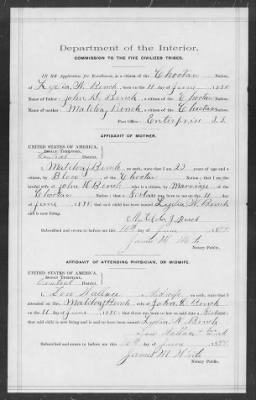 Department of the Interior,
COMMISSION TO THE FIVE CIVILIZED TRIBES.
IN RE Application for Enrollment, as a citizen of the Choctaw Nation,
of Lydia W. Bench, born on the 11 day of June, 1898
Name of Father: John H. Bench, a citizen of the Choctaw Nation.
Name of mother: Matilda J. Bench, a citizen of the Choctaw Nation.
Post Office: Enterprise I.T.
AFFIDAVIT OF MOTHER.
UNITED STATES OF AMERICA,
INDIAN TERRITORY,
Central District.
I, Matilda J Bench, on oath, state that I am 23 years of
age and a citizen by Blood, of the Choctaw Nation; that I am the
lawful wife of John H. Bench, who is a citizen, by Marriage of the
Choctaw Nation; that a female child was born to me on 11 day
of June, 189; that said child has been named Lydia W. Bench,
and is now living.
Matilda J. Bench
Subscribed and sworn to before me this 16th day of June, 1899.
James M. White
Notary Public.
AFFIDAVIT OF ATTENDING PHYSICIAN, OR MIDWIFE.
UNITED STATES OF AMERICA,
INDIAN TERRITORY,
Central District.
I, Wallace, a Midwife, on oath, state that I
attended on Mrs. Matilda J Bench, wife of John H. Bench
on the 11 day of June, 189; that there was born to her on said date a female
child; that said child is now living and is said to have been named Lydia W. Bench
Wallace
Subscribed and sworn to before me this 16th day of June, 1899.
James M. White
Notary Public.